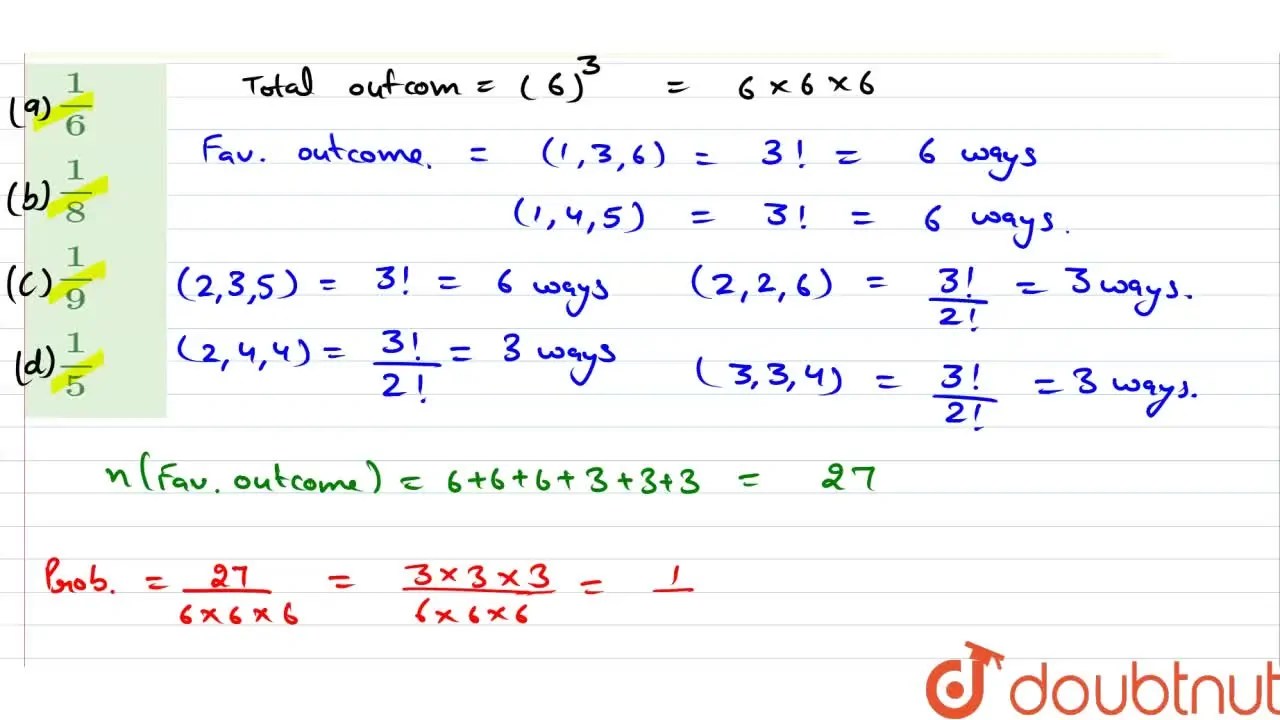 (a) 1/6
(b) 1/8
(c) 1/9
(d) 1/5
Total outcom = (6)³ = 6 × 6 × 6
Fav. outcome. = (1,3,6) = 3! = 6 ways
(1,4,5) = 3! = 6 ways.
(2,3,5) = 3! = 6 ways (2,2,6) = 3!/2! = 3 ways.
(2,4,4) = 3!/2! = 3 ways (3,3,4) = 3!/2! = 3 ways.
n(Fav. outcome) = 6+6+6+3+3+3 = 27
Prob. = 27/6×6×6 = 3×3×3/6×6×6 = 1/
doubtnut